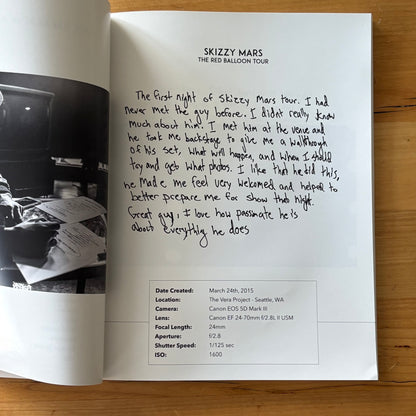 SKIZZY MARS
THE RED BALLOON TOUR
The first night of Skizzy Mars tour. I had
never met the guy before. I didnt really know
much about him. I met him at the venue and
he took me backstage to give me a walkthrough
of his set, what will happen, and when I should
try and get what photos. I like that he did this,
he made me feel very welcomed and helped to
better prepare me for show that night.
Great guy, I love how passinate he is
about everything he does
Date Created: March 24th, 2015
Location: The Vera Project - Seattle, WA
Camera: Canon EOS 5D Mark III
Lens: Canon EF 24-70mm f/2.8L II USM
Focal Length: 24mm
Aperture: f/2.8
Shutter Speed: 1/125 sec
ISO: 1600